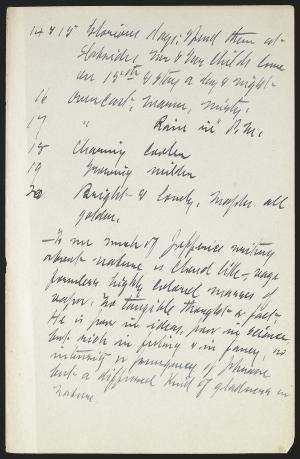 14 & 15 Glorious days; Spend them at
Slabsides, Mr & Mrs Childs come
on 15th & stay a day & night.
16 Overcast, warmer, misty.
17 " Rain in P.M.
18 Charming cooler
19 Growing milder
20 Bright & lovely, maples all
golden.
—To me much of Jefferies writing
about nature is cloud like, vague
formless highly colored masses of
vapor. No tangible thought or fact.
He is poor in ideas, poor in science
but rich in feeling & in fancy, no
intensity or pungency of
but a diffused kind of gladness in
nature.